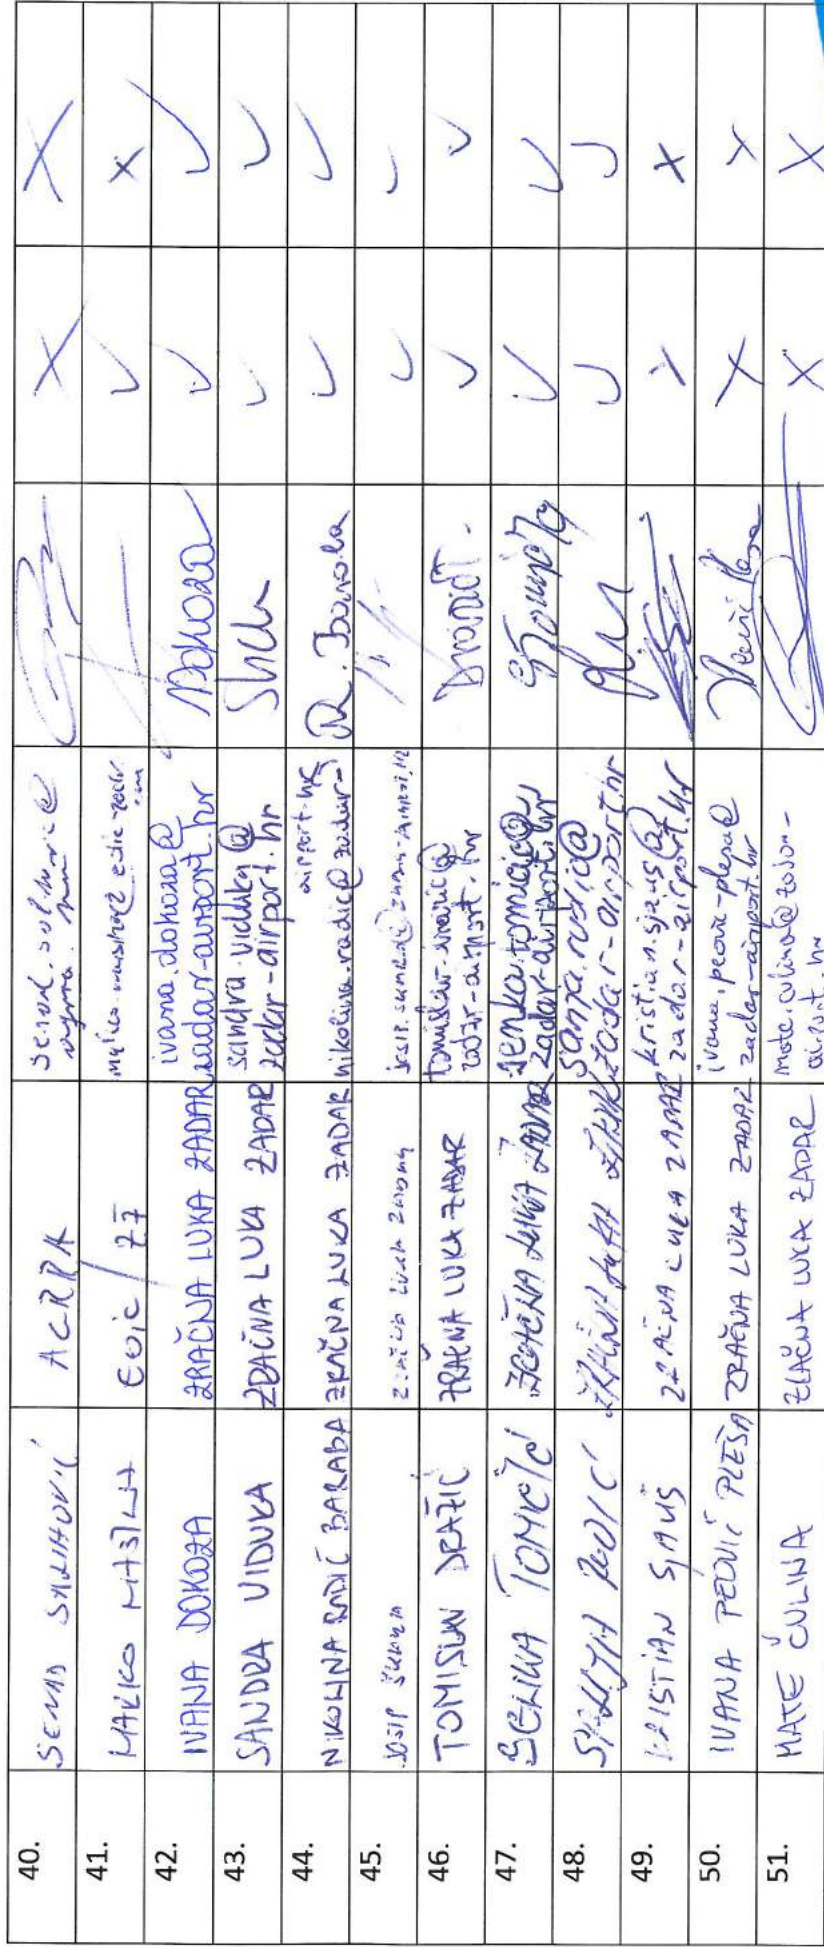 40. SENAD SALIHOVIĆ ACRPA
41. MARKO EDIC / ZZ
42. IVANA DOKOZA ZRAČNA LUKA ZADAR ivana.dokoza@
zadar-airport.hr Dokoza
43. SANDRA VIDUKA ZRAČNA LUKA ZADAR sandra.viduka@
zadar-airport.hr
44. NIKOLINA RADIĆ BARABA ZRAČNA LUKA ZADAR nikolina.radic@zadar-
airport.hr
45. JOSIP ZRAČNA LUKA ZADAR
46. TOMISLAV DRAŽIĆ ZRAČNA LUKA ZADAR tomislav.drazic@
zadar-airport.hr
47. SENKA TOMIČIĆ ZRAČNA LUKA ZADAR senka.tomicic@
zadar-airport.hr
48. SANJA ZRAČNA LUKA ZADAR
zadar-airport.hr
49. KRISTIAN SJAUŠ ZRAČNA LUKA ZADAR kristian.sjaus@
zadar-airport.hr
50. IVANA PEOVIĆ PLEŠA ZRAČNA LUKA ZADAR ivana.peovic-plesa@
zadar-airport.hr
51. MATE ČULINA ZRAČNA LUKA ZADAR mate.culina@zadar-
airport.hr